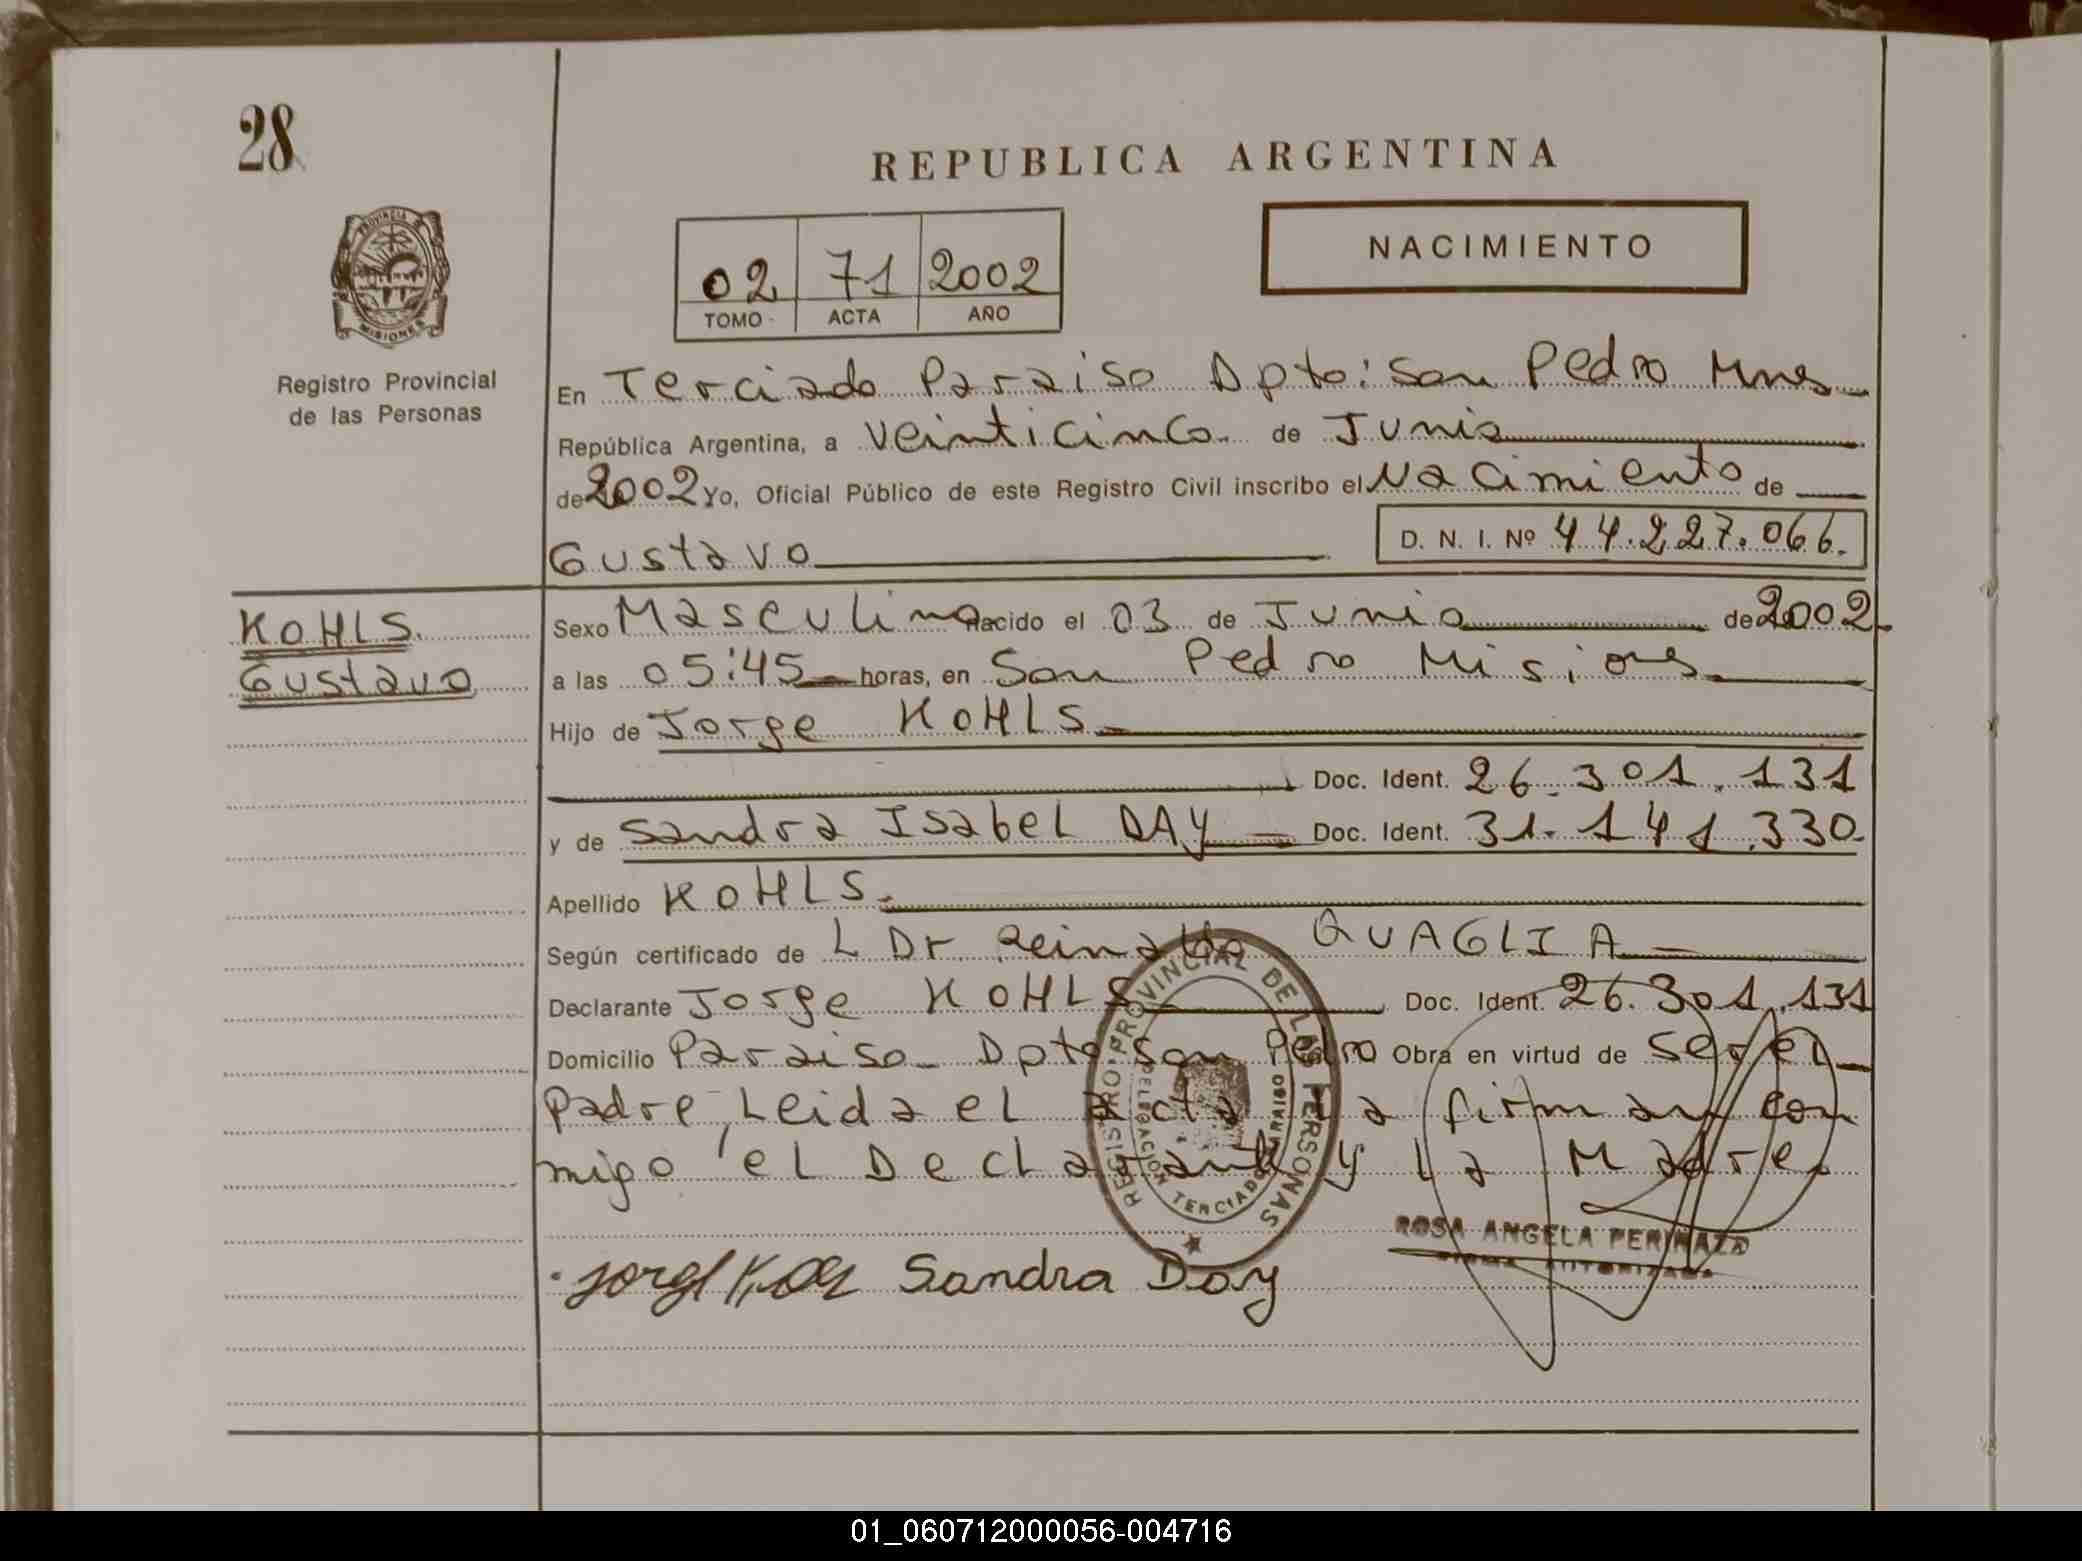 28
REPUBLICA ARGENTINA
PROVINCIA
MISIONES
Registro Provincial
de las Personas
02 71 2002
TOMO ACTA AÑO
NACIMIENTO
En Terciado Paraiso Dpto: San Pedro Mnes
República Argentina, a Veinticinco de Junio
de 2002 Yo, Oficial Público de este Registro Civil inscribo el Nacimiento de
Gustavo D. N. I. Nº 44.227.066.
KOHLS.
Gustavo
Sexo Masculino nacido el 03 de Junio de 2002
a las 05:45 horas, en San Pedro Misiones
Hijo de Jorge KOHLS
Doc. Ident. 26.301.131
y de Sandra Isabel DAY Doc. Ident. 31.141.330
Apellido KOHLS.
Según certificado de L Dr. Reinaldo QUAGLIA
Declarante Jorge KOHLS Doc. Ident. 26.301.131
Domicilio Paraiso Dpto San Pedro Obra en virtud de ser el
padre, Leida el Acta La firman con
migo el Declarante y La Madre
REGISTRO PROVINCIAL DE LAS PERSONAS
DELEGACION TERCIADO PARAISO
ROSA ANGELA
FIRMA AUTORIZADA
Jorge Sandra Day
01_060712000056-004716